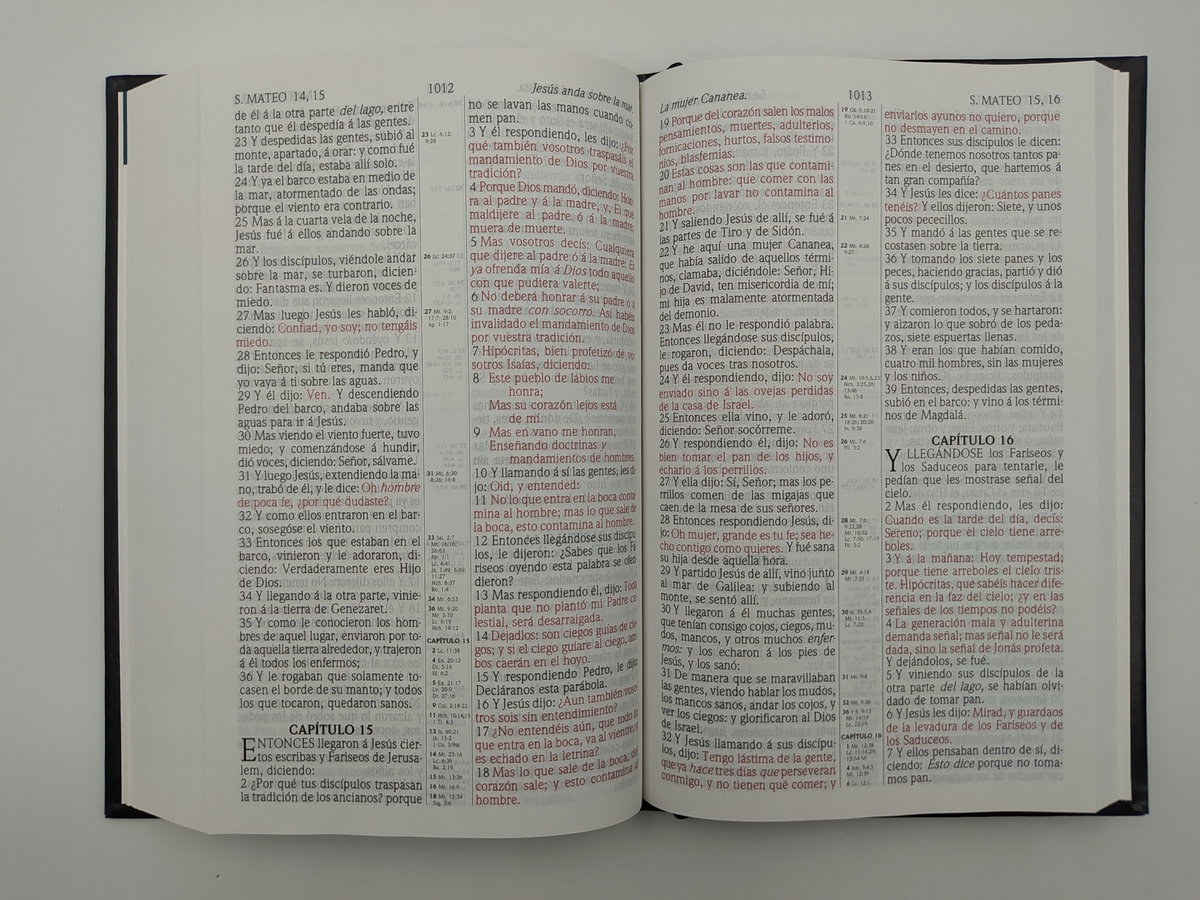 S. MATEO 14, 15
1012
Jesús anda sobre la mar.
de él á la otra parte del lago, entre
tanto que él despedía á las gentes.
23 Y despedidas las gentes, subió al
monte, apartado, á orar: y como fué
la tarde del día, estaba allí solo.
24 Y ya el barco estaba en medio de
la mar, atormentado de las ondas;
porque el viento era contrario.
25 Mas á la cuarta vela de la noche,
Jesús fué á ellos andando sobre la
mar.
26 Y los discípulos, viéndole andar
sobre la mar, se turbaron, dicien-
do: Fantasma es. Y dieron voces de
miedo.
27 Mas luego Jesús les habló, di-
ciendo: Confiad, yo soy; no tengáis
miedo.
28 Entonces le respondió Pedro, y
dijo: Señor, si tú eres, manda que
yo vaya á ti sobre las aguas.
29 Y él dijo: Ven. Y descendiendo
Pedro del barco, andaba sobre las
aguas para ir á Jesús.
30 Mas viendo el viento fuerte, tuvo
miedo; y comenzándose á hundir,
dió voces, diciendo: Señor, sálvame.
31 Y luego Jesús, extendiendo la ma-
no, trabó de él, y le dice: Oh hombre
de poca fe, ¿por qué dudaste?
32 Y como ellos entraron en el bar-
co, sosegóse el viento.
33 Entonces los que estaban en el
barco, vinieron y le adoraron, di-
ciendo: Verdaderamente eres Hijo
de Dios.
34 Y llegando á la otra parte, vinie-
ron á la tierra de Genezaret.
35 Y como le conocieron los hom-
bres de aquel lugar, enviaron por to-
da aquella tierra alrededor, y trajeron
á él todos los enfermos;
36 Y le rogaban que solamente to-
casen el borde de su manto; y todos
los que tocaron, quedaron sanos.
CAPÍTULO 15
ENTONCES llegaron á Jesús cier-
tos escribas y Fariseos de Jerusa-
lem, diciendo:
2 ¿Por qué tus discípulos traspasan
la tradición de los ancianos? porque
23 Lc. 6:12;
9:28
26 Lc. 24:37
27 Mt. 9:2;
17:7; 28:10
Ap. 1:17
31 Mt. 6:30;
8:26; 16:8
33 Sal. 2:7
Mt. 16:16;
26:63
Mr. 1:1
Lc. 4:41
Jn. 1:49; 6:69;
11:27
Hch. 8:37
Ro. 1:4
34 Mr. 6:53
36 Mt. 9:20
Mr. 3:10
Lc. 6:19
Hch. 19:12
CAPÍTULO 15
2 Lc. 11:38
4 Ex. 20:12
Dt. 5:16
Ef. 6:2
5 Ex. 21:17
Lv. 20:9
Dt. 27:16
9 Col. 2:18-22
11 Hch. 10:14,15
1 Ti. 4:3
13 Is. 60:21
Jn. 15:2
1 Co. 3:9ss
14 Mt. 23:16
Lc. 6:39
Ro. 2:19
15 Mt. 13:36
16 Mt. 16:9
18 Mt. 12:34
Stg. 3:6
no se lavan las manos cuando co-
men pan.
3 Y él respondiendo, les dijo: ¿Por
qué también vosotros traspasáis el
mandamiento de Dios por vuestra
tradición?
4 Porque Dios mandó, diciendo: Hon-
ra al padre y á la madre, y, El que
maldijere al padre ó á la madre,
muera de muerte.
5 Mas vosotros decís: Cualquiera
que dijere al padre ó á la madre: Es
ya ofrenda mía á Dios todo aquello
con que pudiera valerte;
6 No deberá honrar á su padre ó á
su madre con socorro. Así habéis
invalidado el mandamiento de Dios
por vuestra tradición.
7 Hipócritas, bien profetizó de vo-
sotros Isaías, diciendo:
8 Este pueblo de lábios me
honra;
Mas su corazón lejos está
de mí.
9 Mas en vano me honran,
Enseñando doctrinas y
mandamientos de hombres.
10 Y llamando á sí las gentes, les di-
jo: Oid, y entended:
11 No lo que entra en la boca conta-
mina al hombre; mas lo que sale de
la boca, esto contamina al hombre.
12 Entonces llegándose sus discípu-
los, le dijeron: ¿Sabes que los Fa-
riseos oyendo esta palabra se ofen-
dieron?
13 Mas respondiendo él, dijo: Toda
planta que no plantó mi Padre ce-
lestial, será desarraigada.
14 Dejadlos: son ciegos guías de cie-
gos; y si el ciego guiare al ciego, am-
bos caerán en el hoyo.
15 Y respondiendo Pedro, le dijo:
Decláranos esta parábola.
16 Y Jesús dijo: ¿Aun también voso-
tros sois sin entendimiento?
17 ¿No entendéis aún, que todo lo
que entra en la boca, va al vientre, y
es echado en la letrina?
18 Mas lo que sale de la boca, del
corazón sale; y esto contamina al
hombre.
La mujer Cananea.
1013
S. MATEO 15, 16
19 Porque del corazón salen los malos
pensamientos, muertes, adulterios,
fornicaciones, hurtos, falsos testimo-
nios, blasfemias.
20 Estas cosas son las que contami-
nan al hombre: que comer con las
manos por lavar no contamina al
hombre.
21 Y saliendo Jesús de allí, se fué á
las partes de Tiro y de Sidón.
22 Y he aquí una mujer Cananea,
que había salido de aquellos térmi-
nos, clamaba, diciéndole: Señor, Hi-
jo de David, ten misericordia de mí;
mi hija es malamente atormentada
del demonio.
23 Mas él no le respondió palabra.
Entonces llegándose sus discípulos,
le rogaron, diciendo: Despáchala,
pues da voces tras nosotros.
24 Y él respondiendo, dijo: No soy
enviado sino á las ovejas perdidas
de la casa de Israel.
25 Entonces ella vino, y le adoró,
diciendo: Señor socórreme.
26 Y respondiendo él, dijo: No es
bien tomar el pan de los hijos, y
echarlo á los perrillos.
27 Y ella dijo: Sí, Señor; mas los pe-
rrillos comen de las migajas que
caen de la mesa de sus señores.
28 Entonces respondiendo Jesús, di-
jo: Oh mujer, grande es tu fe; sea he-
cho contigo como quieres. Y fué sana
su hija desde aquella hora.
29 Y partido Jesús de allí, vino junto
al mar de Galilea: y subiendo al
monte, se sentó allí.
30 Y llegaron á él muchas gentes,
que tenían consigo cojos, ciegos, mu-
dos, mancos, y otros muchos enfer-
mos: y los echaron á los pies de
Jesús, y los sanó:
31 De manera que se maravillaban
las gentes, viendo hablar los mudos,
los mancos sanos, andar los cojos, y
ver los ciegos: y glorificaron al Dios
de Israel.
32 Y Jesús llamando á sus discípu-
los, dijo: Tengo lástima de la gente,
que ya hace tres días que perseveran
conmigo, y no tienen qué comer; y
19 Gá. 5:19-21
1 Co. 6:9,10
21 Mr. 7:24
22 Mt. 4:24;
9:27
24 Mt. 10:5,6,23
Hch. 3:25,26;
13:46
Ro. 15:8
25 Mt. 8:2;
18:26; 20:20
Jn. 9:38
26 Mt. 7:6
Fil. 3:2
28 Mt. 7:6;
9:22,28
Mr. 10:52
Lc. 7:50; 17:19
Fil. 3:2
29 Mt. 4:18
Mr. 7:31
30 Is. 35:5,6
Mt. 11:5
Lc. 7:22
31 Mt. 9:8
32 Mt. 9:36
36 1 S. 9:13
Mt. 14:19
Lc. 22:19
CAPÍTULO 16
1 Mt. 12:38
Lc. 11:16,29;
12:54-56
4 Jon. 3:4,5
Mt. 12:39
6 Lc. 12:1
enviarlos ayunos no quiero, porque
no desmayen en el camino.
33 Entonces sus discípulos le dicen:
¿Dónde tenemos nosotros tantos pa-
nes en el desierto, que hartemos á
tan gran compañía?
34 Y Jesús les dice: ¿Cuántos panes
tenéis? Y ellos dijeron: Siete, y unos
pocos pececillos.
35 Y mandó á las gentes que se re-
costasen sobre la tierra.
36 Y tomando los siete panes y los
peces, haciendo gracias, partió y dió
á sus discípulos; y los discípulos á la
gente.
37 Y comieron todos, y se hartaron:
y alzaron lo que sobró de los peda-
zos, siete espuertas llenas.
38 Y eran los que habían comido,
cuatro mil hombres, sin las mujeres
y los niños.
39 Entonces, despedidas las gentes,
subió en el barco: y vino á los térmi-
nos de Magdalá.
CAPÍTULO 16
Y LLEGÁNDOSE los Fariseos y
los Saduceos para tentarle, le
pedían que les mostrase señal del
cielo.
2 Mas él respondiendo, les dijo:
Cuando es la tarde del día, decís:
Sereno; porque el cielo tiene arre-
boles.
3 Y á la mañana: Hoy tempestad;
porque tiene arreboles el cielo tris-
te. Hipócritas, que sabéis hacer dife-
rencia en la faz del cielo; ¿y en las
señales de los tiempos no podéis?
4 La generación mala y adulterina
demanda señal; mas señal no le será
dada, sino la señal de Jonás profeta.
Y dejándolos, se fué.
5 Y viniendo sus discípulos de la
otra parte del lago, se habían olvi-
dado de tomar pan.
6 Y Jesús les dijo: Mirad, y guardaos
de la levadura de los Fariseos y de
los Saduceos.
7 Y ellos pensaban dentro de sí, di-
ciendo: Esto dice porque no toma-
mos pan.